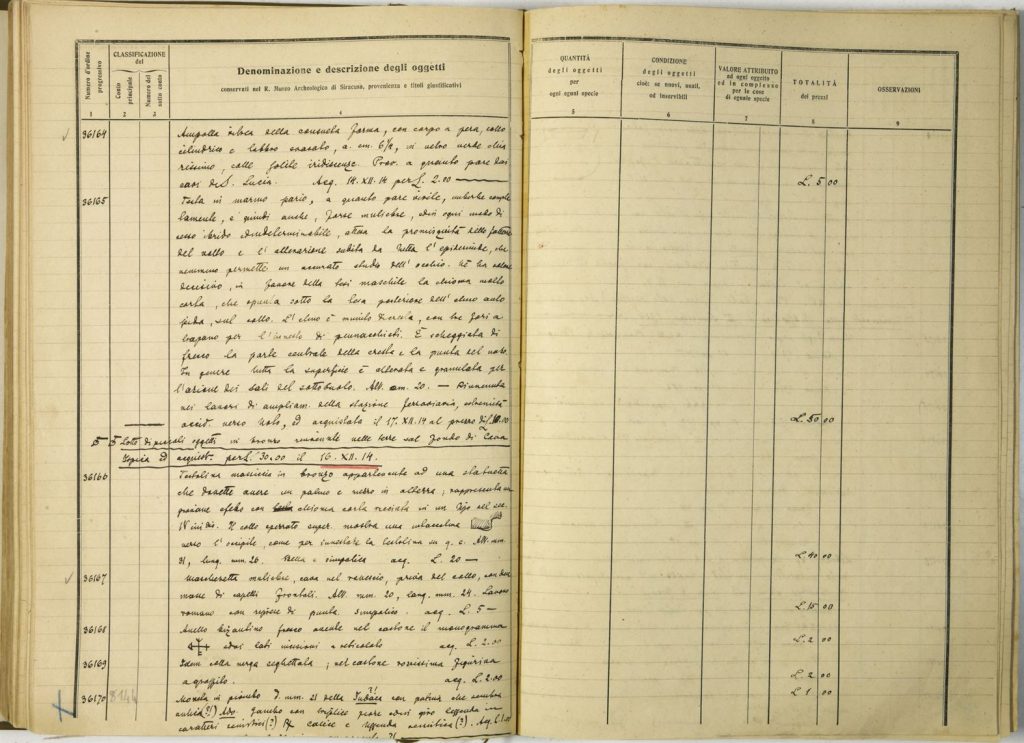 Numero d'ordine progressivo
CLASSIFICAZIONE del
Conto principale
Numero del sotto conto
Denominazione e descrizione degli oggetti
conservati nel R. Museo Archeologico di Siracusa, provenienza e titoli giustificativi
1 2 3 4
QUANTITÀ degli oggetti per ogni eguale specie
CONDIZIONE degli oggetti cioè: se nuovi, usati, od inservibili
VALORE ATTRIBUITO ad ogni oggetto ed in complesso per le cose di eguale specie
TOTALITÀ dei prezzi
OSSERVAZIONI
5 6 7 8 9
36164 Ampolla vitrea della consueta forma, con corpo a pera, collo
cilindrico e labbro svasato, a. cm. 6½, in vetro verde chia
rissimo, colle solite iridiscenze. Prov. a quanto pare dai
cavi di S. Lucia. Acq. 14.XII.14 per L. 2.00
L. 5 00
36165 Testa in marmo pario, a quanto pare virile, imberbe comple
tamente, e quindi anche, forse muliebre, ad ogni modo di
sesso indeterminabile, attesa la promiscuità delle fattezze
del volto e l'alterazione subita da tutta l'epidermide, che
nemmeno permette un accurato studio dell'occhio. Ha valore
decisivo, in favore della tesi maschile la chioma molto
corta, che spunta sotto la posteriore dell'elmo
sul collo. L'elmo è munito con tre fori a
trapano per l'innesto di pennacchietti. È scheggiata di
fresco la parte centrale della cresta e la punta del naso.
In genere tutta la superficie è alterata e granulata per
l'azione dei sali del sottosuolo. Alt. cm. 20. — Rinvenuta
nei lavori di ampliam. della stazione ferroviaria, estremità
occid. verso Noto, ed acquistata il 17.XII.14 al prezzo di
L. 50 00
Lotto di piccoli oggetti in bronzo rinvenute nelle terre sul fondo di
ed acquist. per L. 30.00 il 16.XII.14.
36166 Testolina massiccia in bronzo appartenente ad una statuetta
che dovette avere un palmo e mezzo in altezza; rappresenta un
giovane efebo con chioma corta recisata in un tipo del sec.
IV inidio. Il collo mostra una
verso l'occipite, come per innestare la testolina su q. c. Alt. mm.
31, lung. mm. 26. Bella e simpatica acq. L. 20 —
L. 40 00
36167 Mascheretta muliebre, cava nel rovescio, priva del collo, con due
masse di capelli frontali. Alt. mm. 20, larg. mm. 24. Lavoro
romano con di punta. Simpatico. acq. L. 5 —
L. 15 00
36168 Anello bizantino avente nel castone il monogramma
ai lati incisioni a reticolato acq. L. 2.00
L. 2 00
36169 Idem colla verga seghettata; nel castone rozzissima figurina
a graffito. acq. L. 2.00
L. 2 00
36170 8144 Moneta in piombo D. mm. 21 della Judaea ?! con patina che sembra
antica (?!)
caratteri semitici (?) Rx calice e leggenda semitica (?). Acq. L. 1.00
L. 1 00